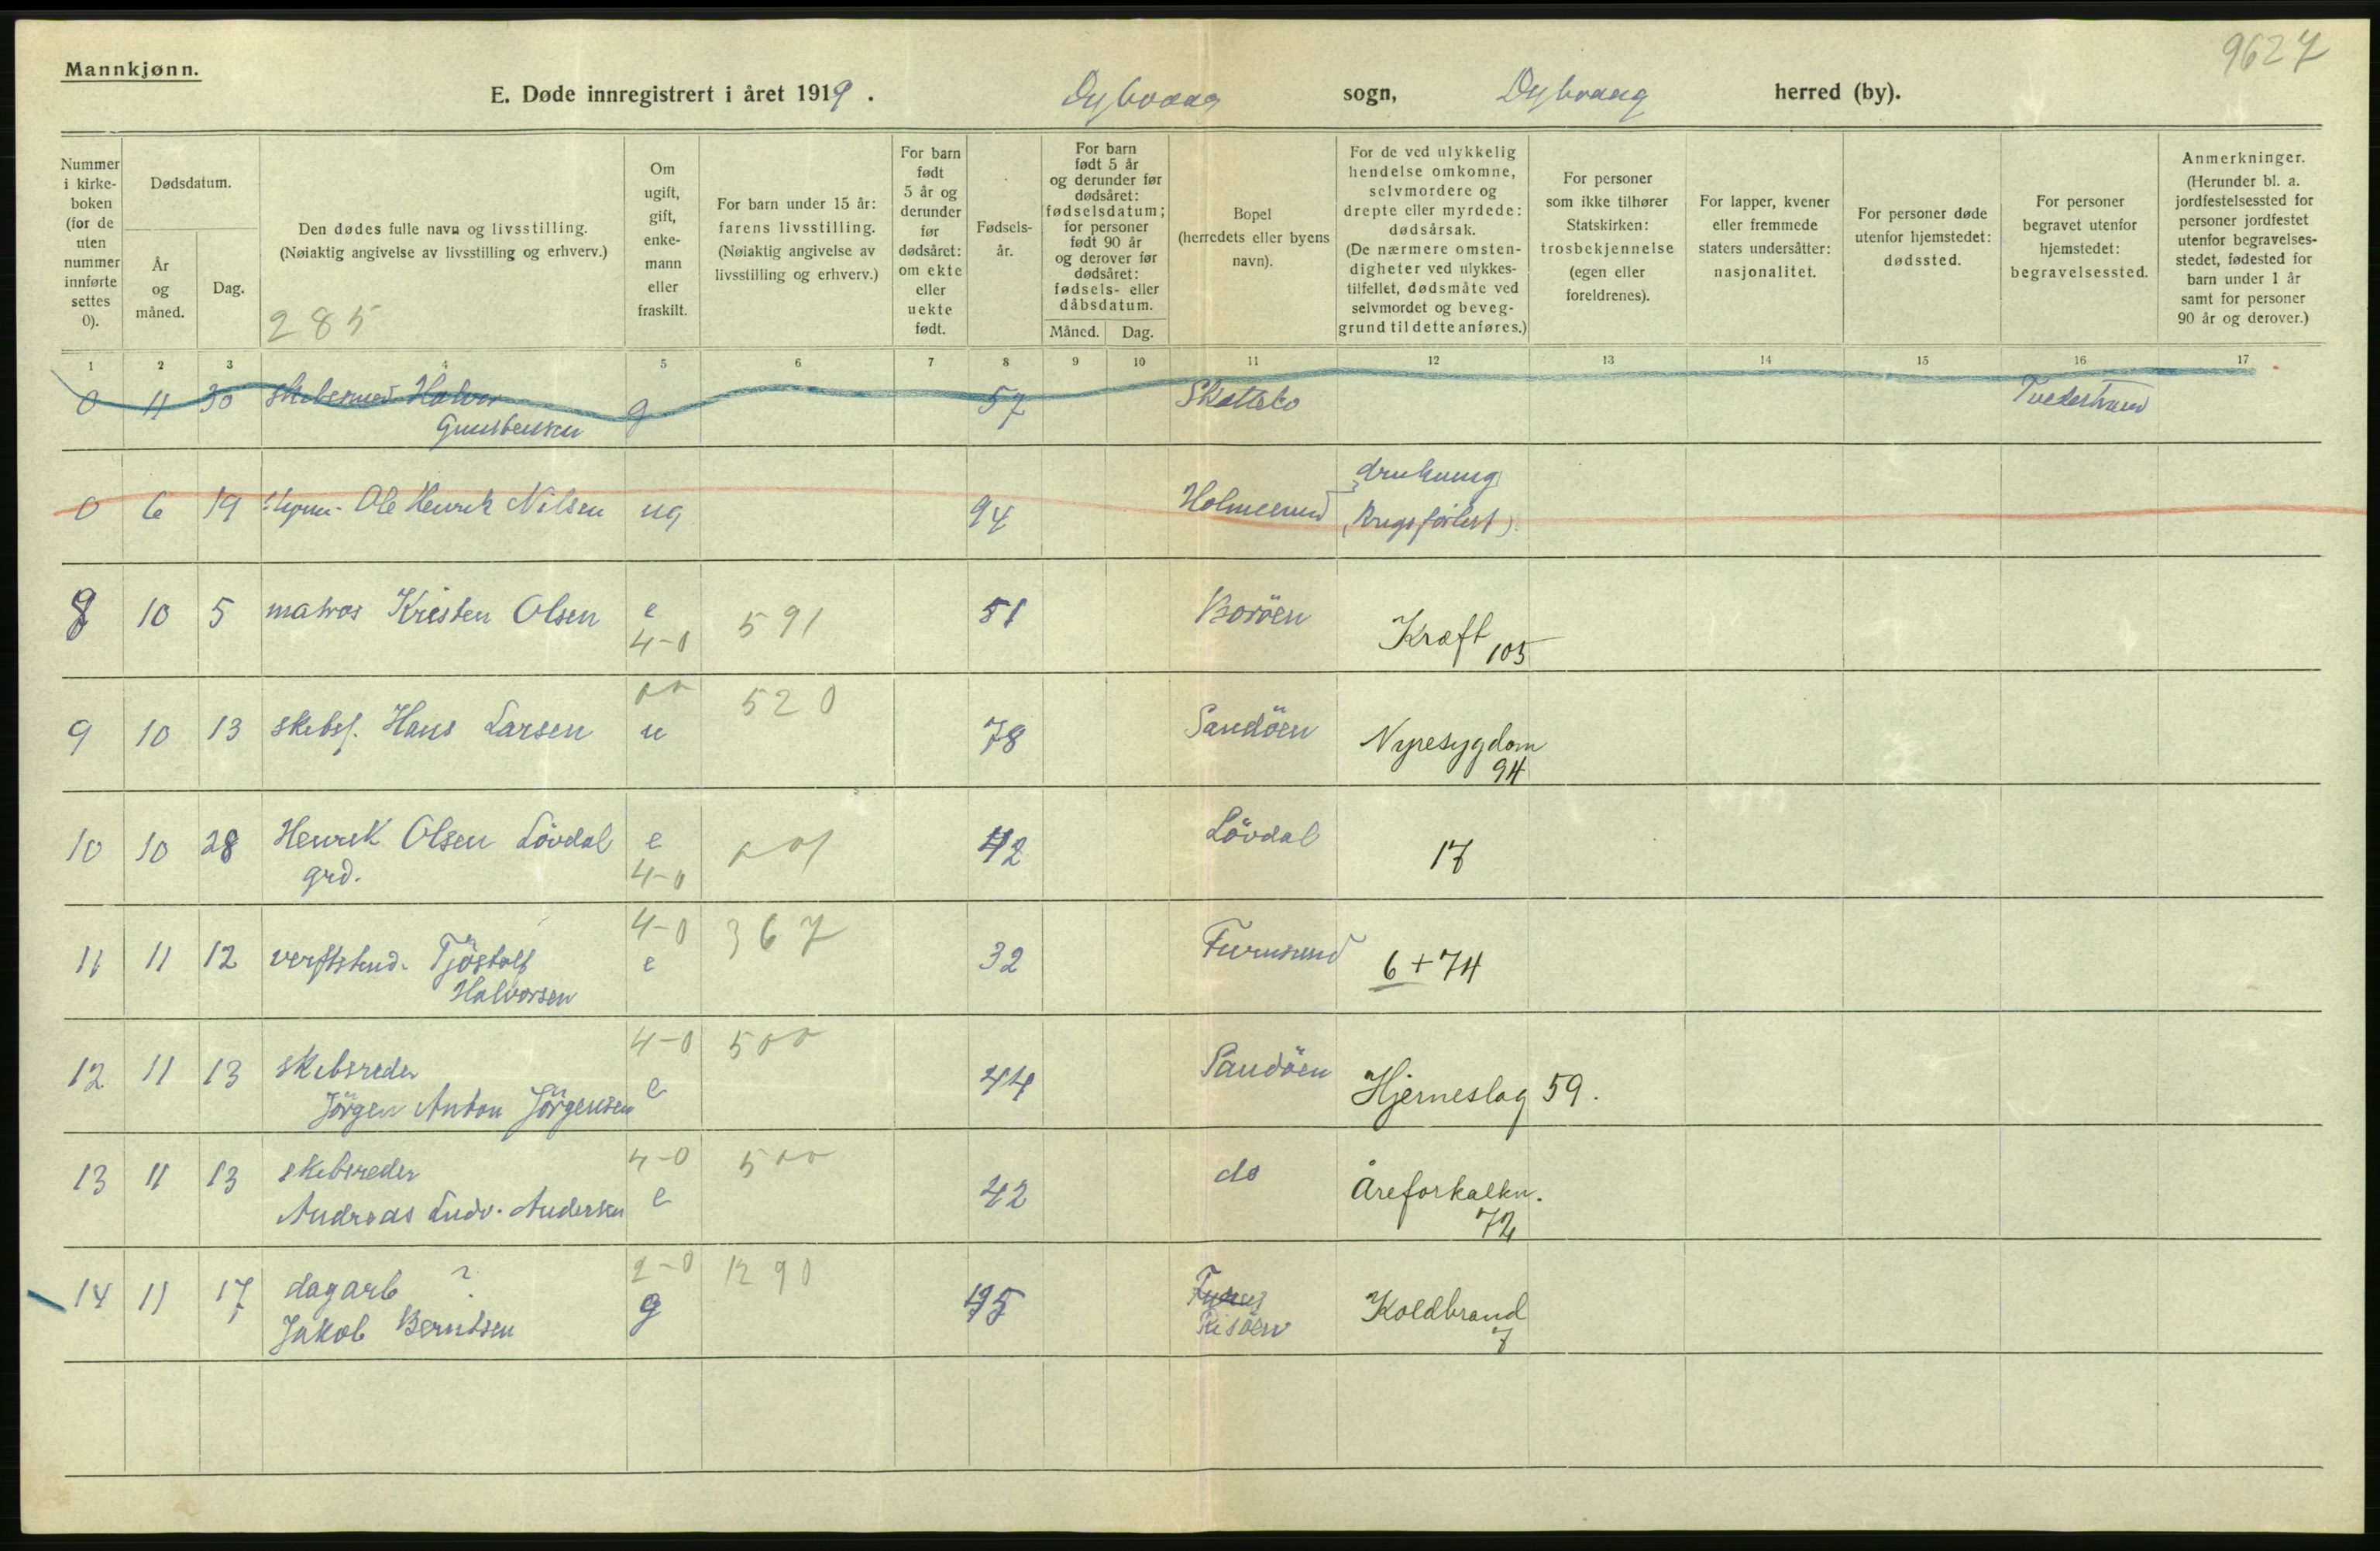 9627
Mannkjønn.
E. Døde innregistrert i året 1919. Dybvaag sogn, Dybvaag herred (by).
Nummer i kirke-boken (for de uten nummer innførte settes 0).
Dødsdatum.
År og måned.
Dag.
Den dødes fulle navn og livsstilling.
(Nøiaktig angivelse av livsstilling og erhverv.)
285
Om ugift, gift, enke-mann eller fraskilt.
For barn under 15 år: farens livsstilling. (Nøiaktig angivelse av livsstilling og erhverv.)
For barn født 5 år og derunder før dødsåret: om ekte eller uekte født.
Fødsels-år.
For barn født 5 år og derunder før dødsåret: fødselsdatum; for personer født 90 år og derover før dødsåret: fødsels- eller dåbsdatum.
Måned. Dag.
Bopel (herredets eller byens navn).
For de ved ulykkelig hendelse omkomne, selvmordere og drepte eller myrdede: dødsårsak. (De nærmere omsten-digheter ved ulykkes-tilfellet, dødsmåte ved selvmordet og beveg-grund til dette anføres.)
For personer som ikke tilhører Statskirken: trosbekjennelse (egen eller foreldrenes).
For lapper, kvener eller fremmede staters undersåtter: nasjonalitet.
For personer døde utenfor hjemstedet: dødssted.
For personer begravet utenfor hjemstedet: begravelsessted.
Anmerkninger. (Herunder bl. a. jordfestelsessted for personer jordfestet utenfor begravelses-stedet, fødested for barn under 1 år samt for personer 90 år og derover.)
1 2 3 4 5 6 7 8 9 10 11 12 13 14 15 16 17
0 11 30 Halvor g 57 Tvedestrand
0 6 19 Ole Henrik Nilsen ug 94 Holmesund drukning
(Krigsforlist)
8 10 5 matros Kristen Olsen e 591 51 Boröen Kræft
4-0 105
520
9 10 13 skibsf. Hans Larsen u 78 Sandöen Nyresygdom
94
10 10 28 Henrik Olsen Lövdal e 42 Lövdal 17
grd. 4-0
4-0 367
11 11 12 Tjöstolf e 32 Furusund 6+74
Halvorsen
4-0 500
12 11 13 skibsreder e 44 Sandöen Hjerneslag 59.
Jörgen Anton Jörgensen
4-0 500
13 11 13 skibsreder e 42 do Åreforkalkn.
Andreas Ludv. Andersen 72
2-0 1290
14 11 17 dagarb ? g 45 Koldbrand
Jakob Berntsen Risöen 7